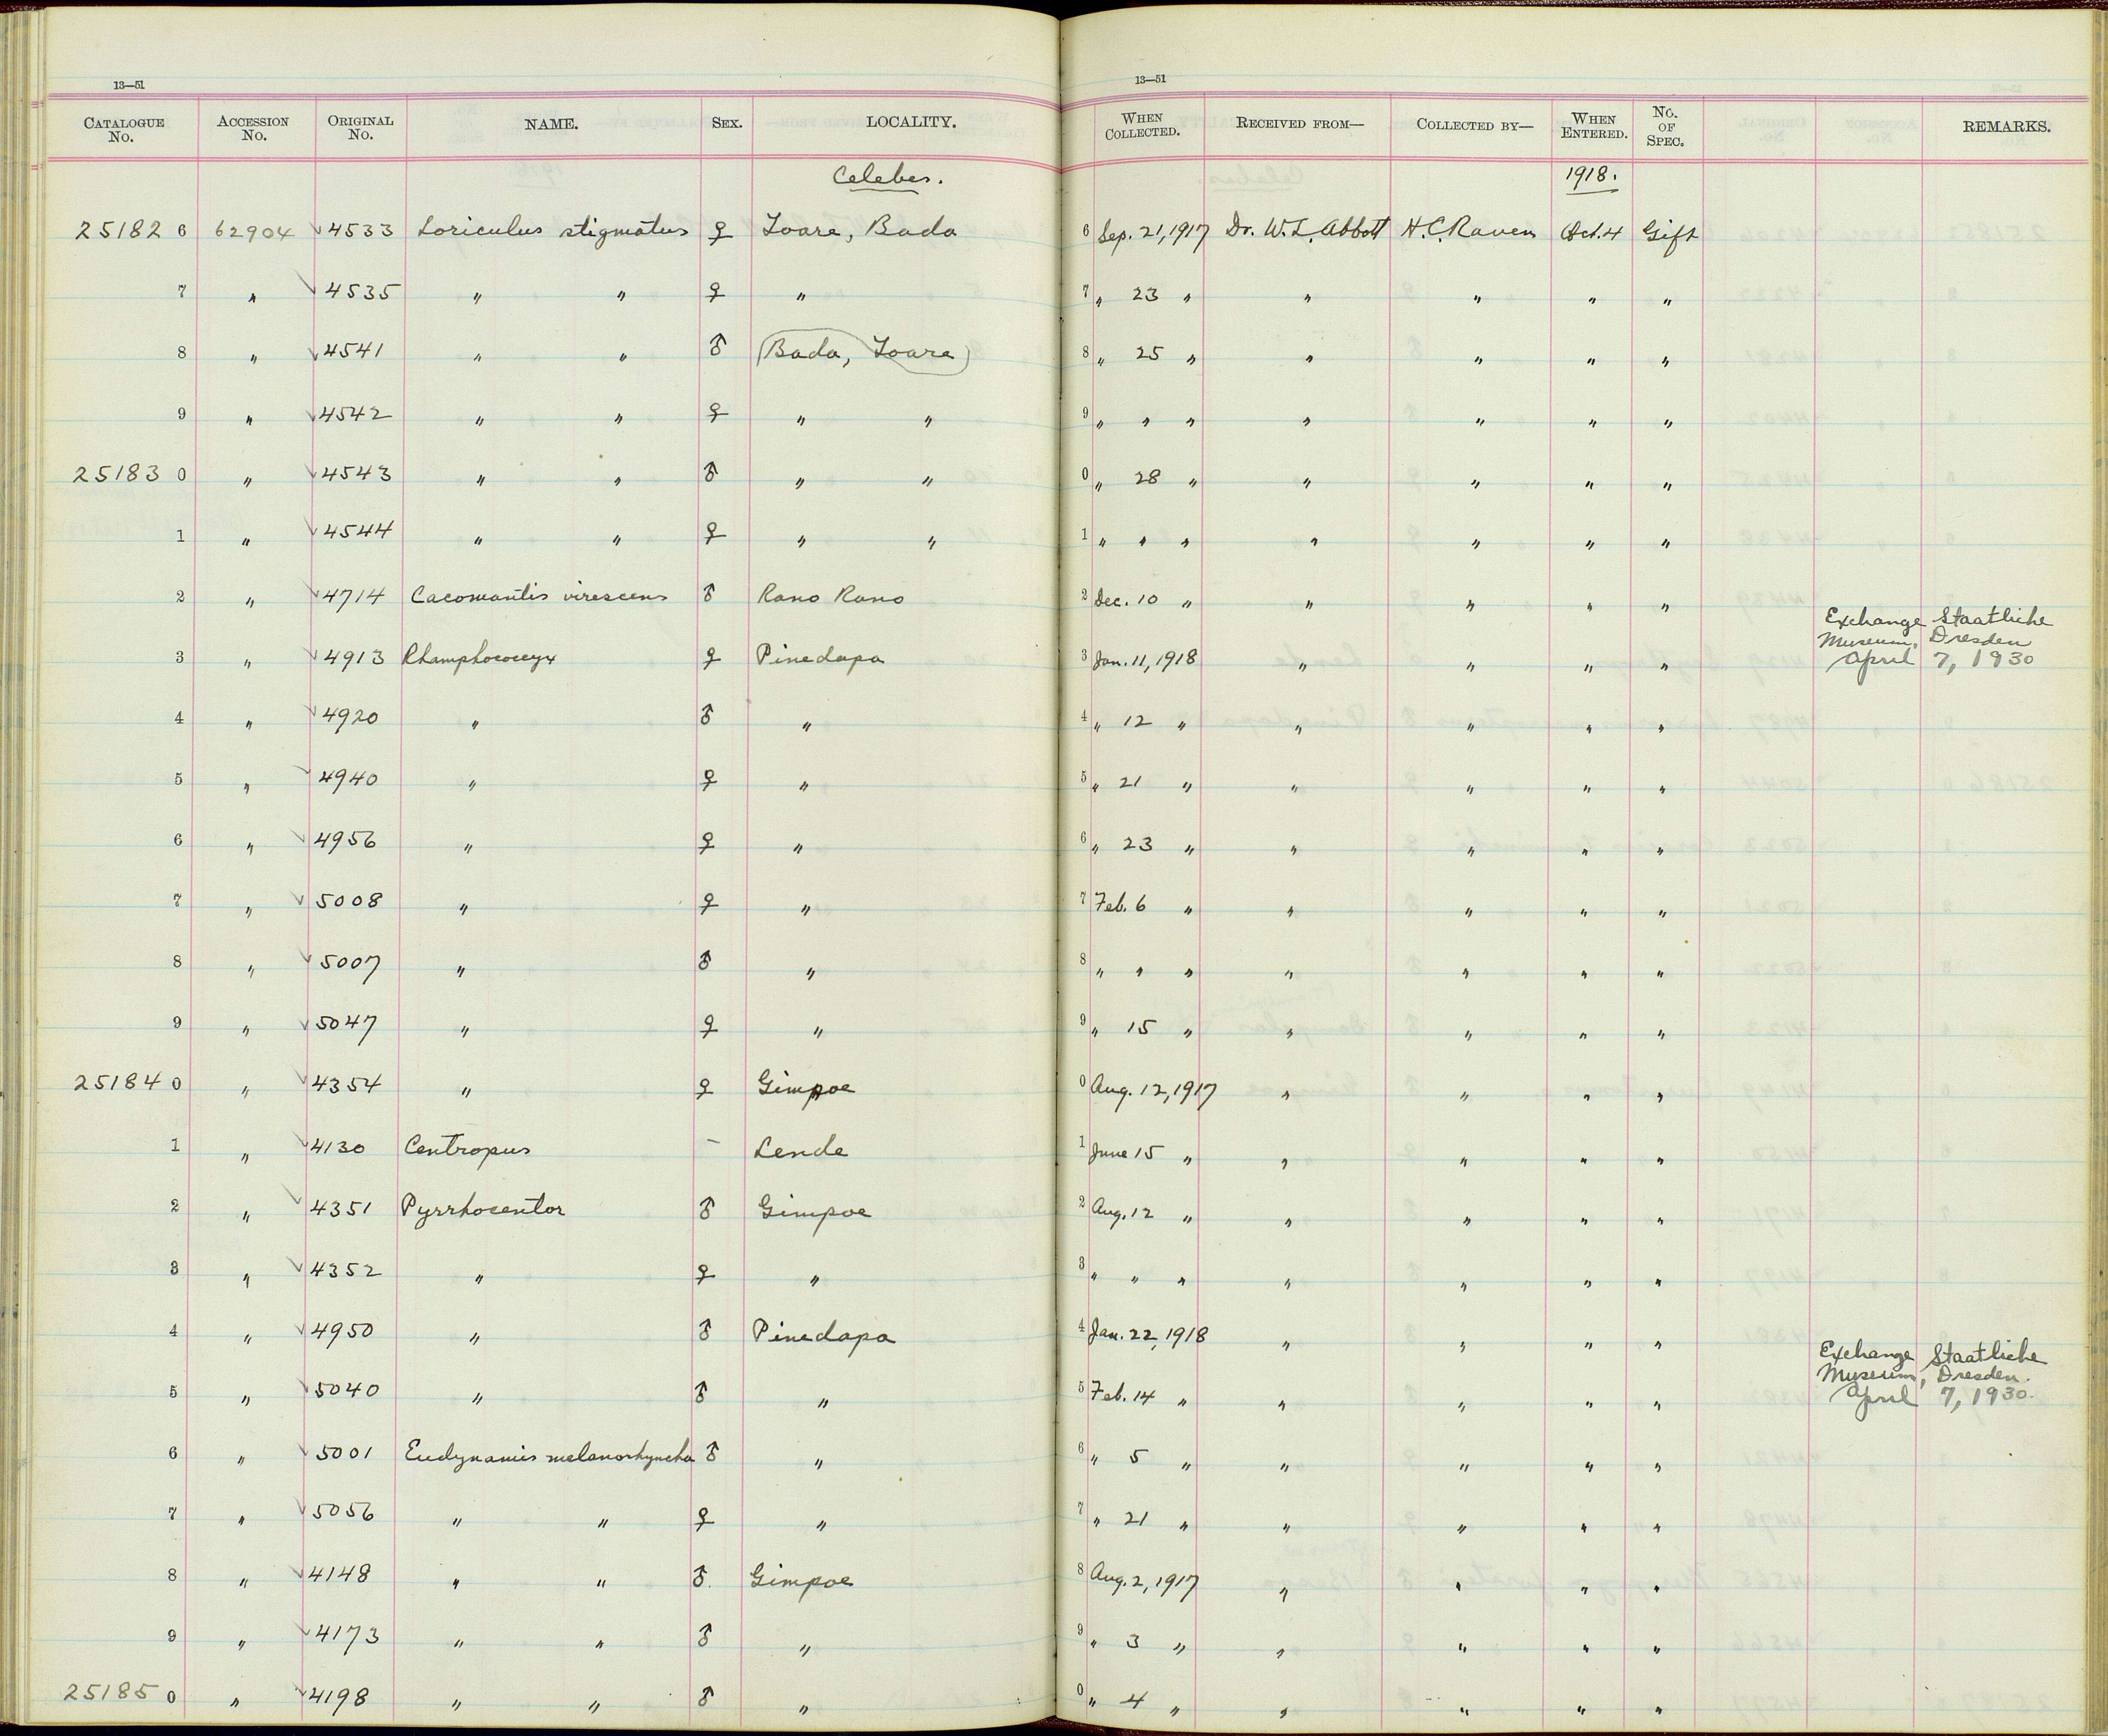 13—51
13—51
CATALOGUE No. ACCESSION No. ORIGINAL No. NAME. SEX. LOCALITY. WHEN COLLECTED. RECEIVED FROM— COLLECTED BY— WHEN ENTERED. No. OF SPEC. REMARKS.
Celebes. 1918.
25182 6 62904 √ 4533 Loriculus stigmatus ♀ Toare, Bada 6 Sep. 21, 1917 Dr. W. L. Abbott H. C. Raven Oct. 4 Gift
7 " √ 4535 " " ♀ " 7 " 23 " " " " "
8 " √ 4541 " " ♂ (Bada, Toare) 8 " 25 " " " " "
9 " √ 4542 " " ♀ " " 9 " " " " " " "
25183 0 " √ 4543 " " ♂ " " 0 " 28 " " " " "
1 " √ 4544 " " ♀ " " 1 " " " " " " "
2 " √ 4714 Cacomantis virescens ♂ Rano Rano 2 Dec. 10 " " " " "
3 " √ 4913 Rhamphococcyx ♀ Pinedapa 3 Jan. 11, 1918 " " " " Exchange Staatliche
Museum, Dresden
April 7, 1930
4 " √ 4920 " ♂ " 4 " 12 " " " " "
5 " √ 4940 " ♀ " 5 " 21 " " " " "
6 " √ 4956 " ♀ " 6 " 23 " " " " "
7 " √ 5008 " ♀ " 7 Feb. 6 " " " " "
8 " √ 5007 " ♂ " 8 " " " " " " "
9 " √ 5047 " ♀ " 9 " 15 " " " " "
25184 0 " √ 4354 " ♀ Gimpoe 0 Aug. 12, 1917 " " " "
1 " √ 4130 Centropus – Lende 1 June 15 " " " " "
2 " √ 4351 Pyrrhocentor ♂ Gimpoe 2 Aug. 12 " " " " "
3 " √ 4352 " ♀ " 3 " " " " " " "
4 " √ 4950 " ♂ Pinedapa 4 Jan. 22, 1918 " " " "
5 " √ 5040 " ♂ " 5 Feb. 14 " " " " " Exchange Staatliche
Museum, Dresden.
April 7, 1930.
6 " √ 5001 Eudynamis melanorhyncha ♂ " 6 " 5 " " " " "
7 " √ 5056 " " ♀ " 7 " 21 " " " " "
8 " √ 4148 " " ♂. Gimpoe 8 Aug. 2, 1917 " " " "
9 " √ 4173 " " ♂ " 9 " 3 " " " " "
25185 0 " √ 4198 " " ♂ " 0 " 4 " " " " "